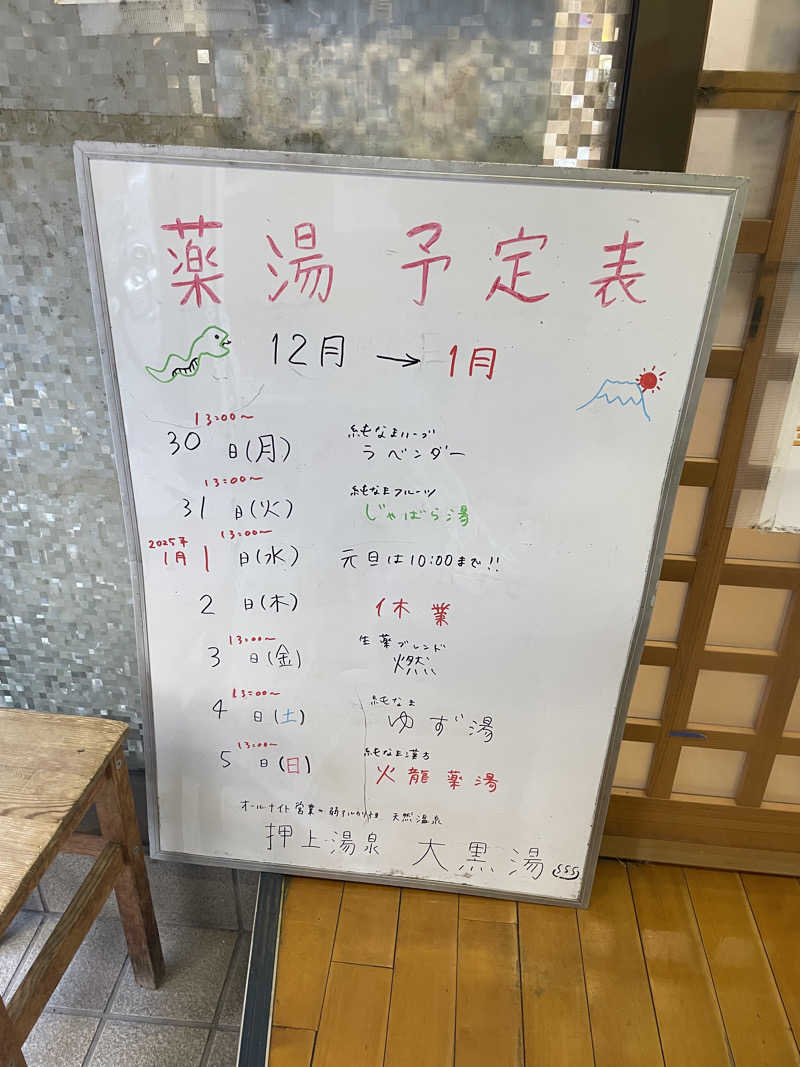 薬湯予定表
12月 → 1月
13:00〜
30日(月) 純なまハーブ
ラベンダー
13:00〜
31日(火) 純なまフルーツ
じゃばら湯
13:00〜
2025年
1月1日(水) 元旦は10:00まで!!
2日(木) 休業
13:00〜
3日(金) 生薬ブレンド
燃
13:00〜
4日(土) 純なま
ゆず湯
13:00〜
5日(日) 純なま漢方
火龍薬湯
オールナイト営業 天然温泉
押上温泉 大黒湯